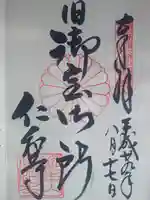 奉拝
八月十七日
旧御室御所
仁和寺